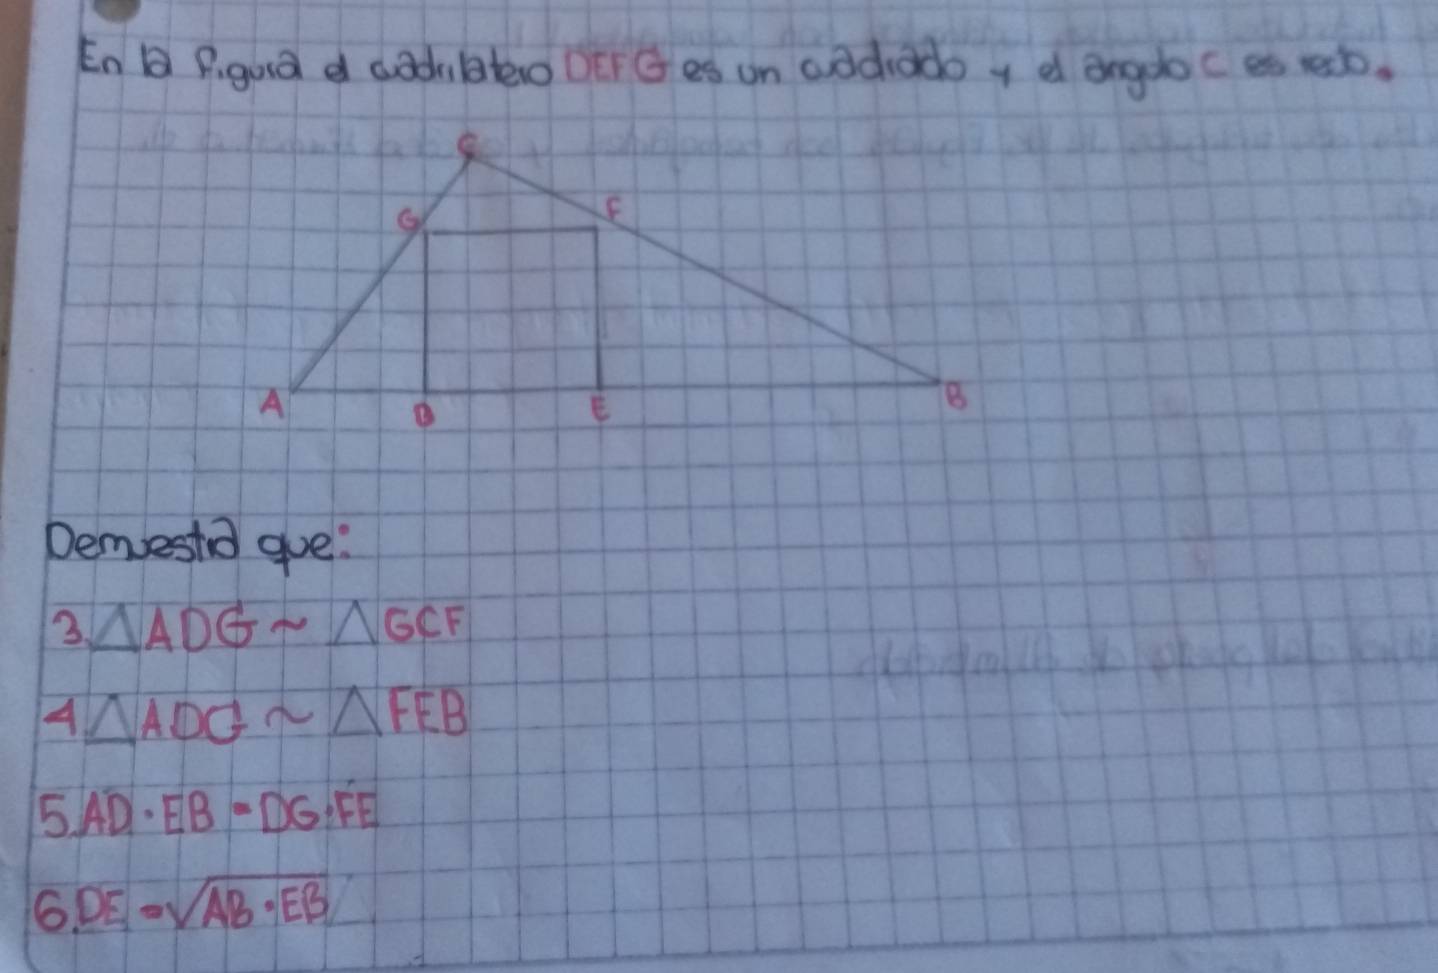 En la figura el cuadrilatero DEFG es un cuadrado y el angulo C es recto.
C
G F
A D E B
Demuestra que:
3. △ADG ~ △GCF
4 △ADG ~ △FEB
5. AD · EB = DG · FE
6. DE = √AB · EB